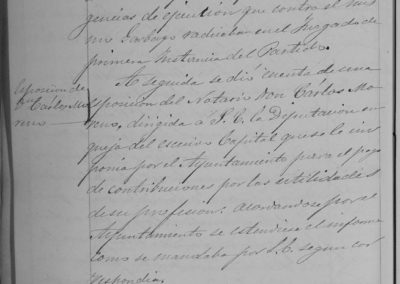 gencias de ejecucion que contra el mis
mo trabajo radicaban en el Juzgado de
primera Instancia del Partido.
Esposicion de
Dn Carlos Mo
reno
A seguida se dió cuenta de una
esposicion del Notario Don Carlos Mo
reno, dirigida á S. E. la Diputacion en
queja del escesivo Capital que se le im
ponia por el Ayuntamiento para el pago
de contribuciones por las utilidades
de su profesion: acordandose por el
Ayuntamiento se estendiese el informe
como se mandaba por S. E. segun cor
respondia.